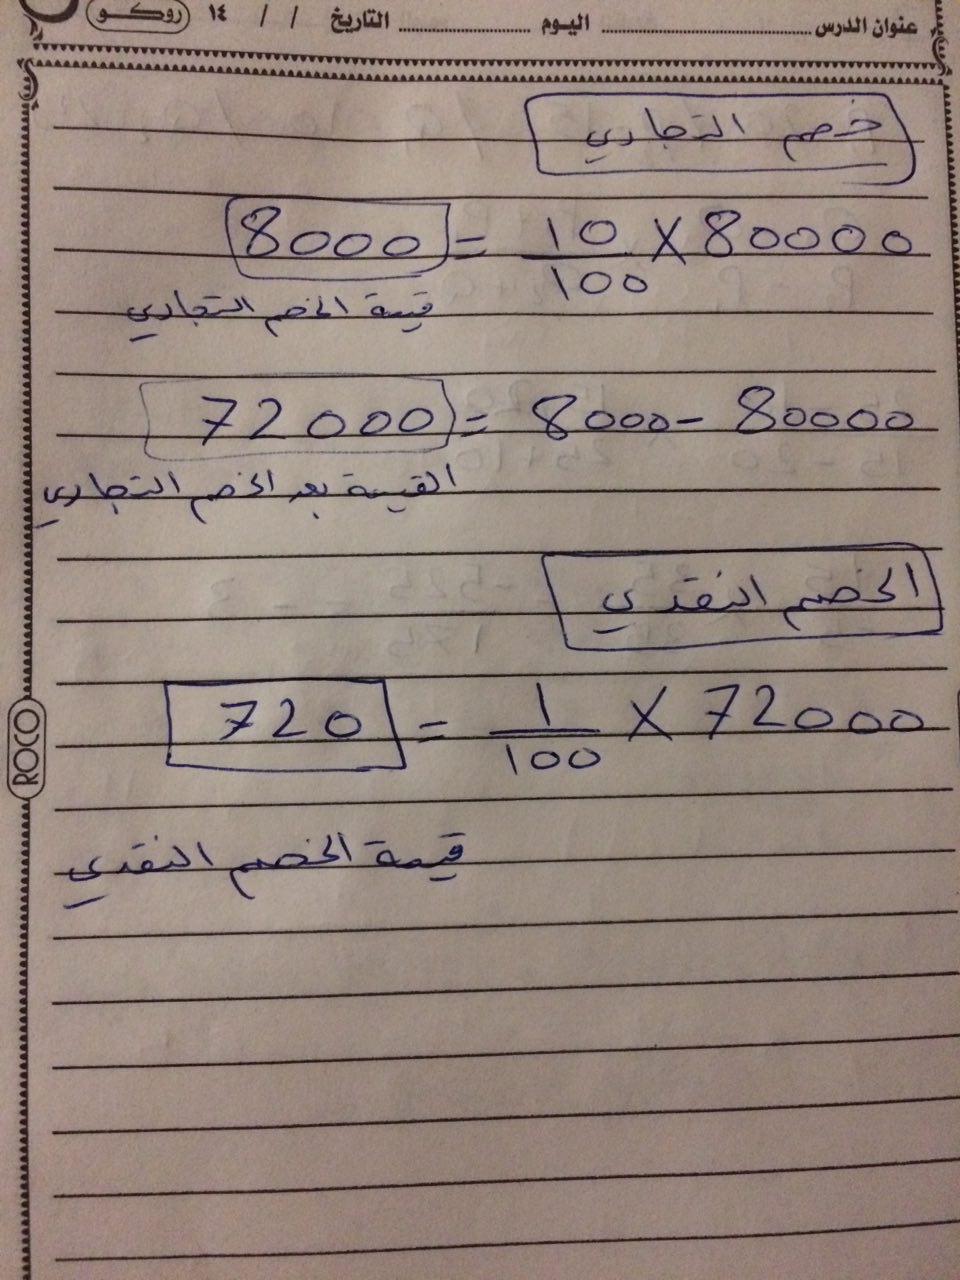 عنوان الدرس .................... اليوم .................... التاريخ / / ١٤ روكو
خصم التجاري
80000 × 10/100 = 8000
قيمة الخصم التجاري
80000 - 8000 = 72000
القيمة بعد الخصم التجاري
الخصم النقدي
72000 × 1/100 = 720
قيمة الخصم النقدي
ROCO